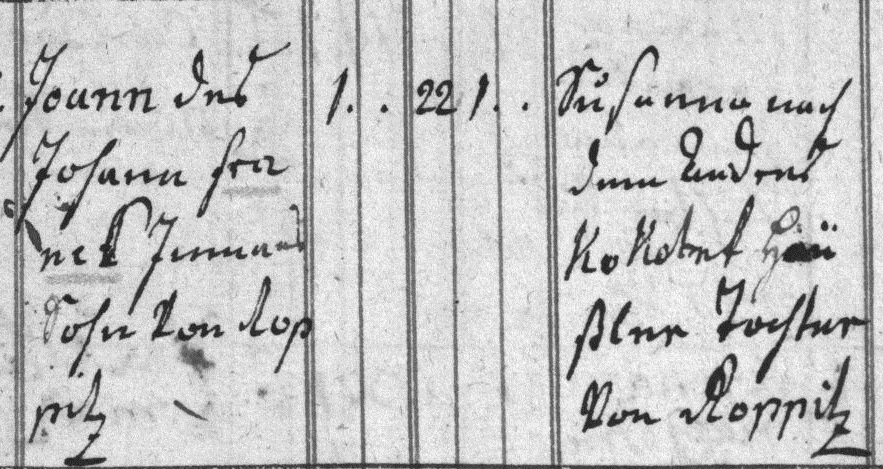 Joann des
Johann fra
nek Inmans
Sohn Von Rop
pitz
1. . 22 1. .
Susanna nach
dem Andres
Kokotek Häu
ßler Tochter
Von Roppitz